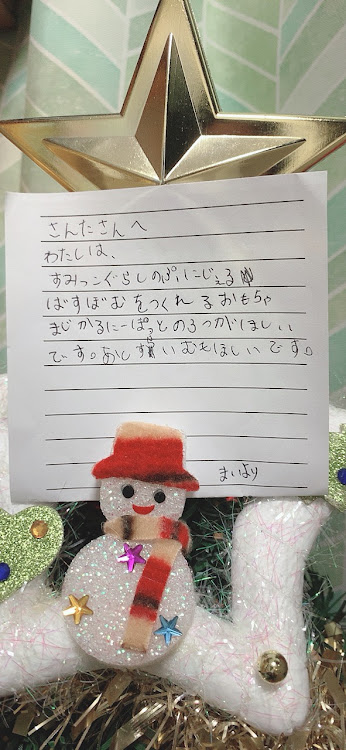 さんたさんへ
わたしは、
すみっこぐらしのぷにじぇる
ばすぼむをつくれるおもちゃ
まじかるにーぱっとの3つがほしい
です。あといむもほしいです。
まいより